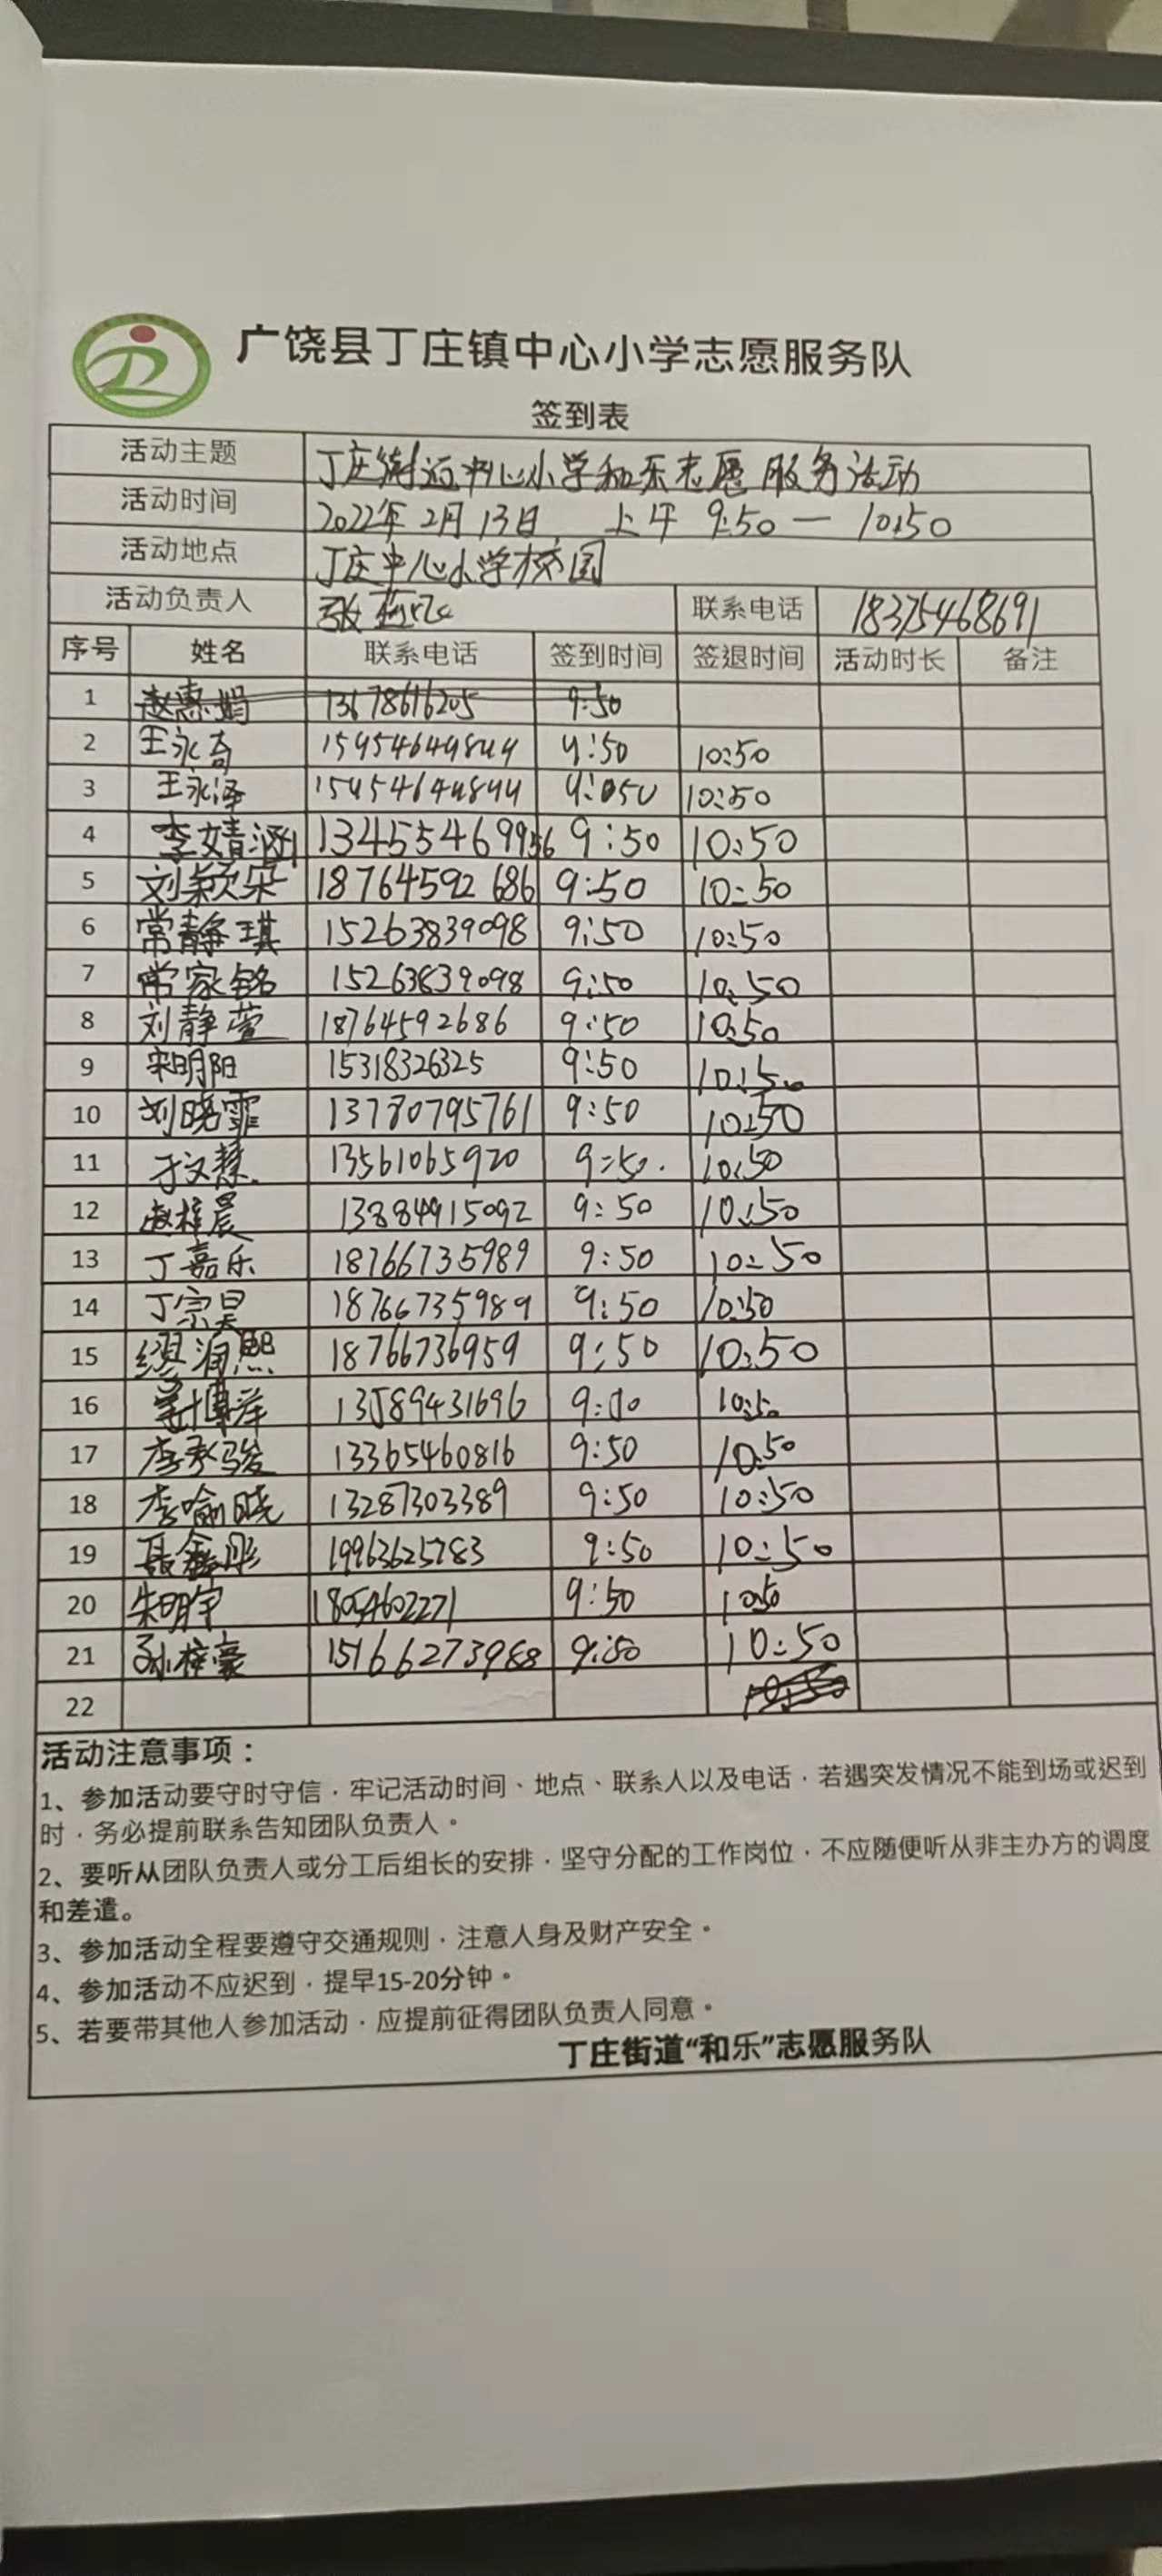 广饶县丁庄镇中心小学志愿服务队
签到表
活动主题 丁庄街道中心小学和乐志愿服务活动
活动时间 2022年2月13日 上午 9:50 — 10:50
活动地点 丁庄中心小学校园
活动负责人 张 联系电话 18375468691
序号 姓名 联系电话 签到时间 签退时间 活动时长 备注
1 赵惠娟 13678616205 9:50
2 王永奇 15954644844 9:50 10:50
3 王永泽 15454644844 9:050 10:50
4 李婧涵 13455469956 9:50 10:50
5 刘颖朵 18764592686 9:50 10:50
6 常静琪 15263839098 9:50 10:50
7 常家铭 15263839098 9:50 10:50
8 刘静萱 18764592686 9:50 10:50
9 宋明阳 15318326325 9:50 10:50
10 刘晓霏 13780795761 9:50 10:50
11 于文慧 13561065920 9:50. 10:50
12 赵梓晨 13884915092 9:50 10:50
13 丁嘉乐 18766735989 9:50 10:50
14 丁宗昊 18766735989 9:50 10:50
15 缪润熙 18766736959 9:50 10:50
16 博洋 13589431696 9:50 10:50
17 李承骏 13365460816 9:50 10:50
18 李喻晓 13287303389 9:50 10:50
19 聂鑫彤 19963625783 9:50 10:50
20 朱明宇 18054602271 9:50 10:50
21 孙梓豪 15166273988 9:50 10:50
22
活动注意事项：
1、参加活动要守时守信，牢记活动时间、地点、联系人以及电话，若遇突发情况不能到场或迟到
时，务必提前联系告知团队负责人。
2、要听从团队负责人或分工后组长的安排，坚守分配的工作岗位，不应随便听从非主办方的调度
和差遣。
3、参加活动全程要遵守交通规则，注意人身及财产安全。
4、参加活动不应迟到，提早15-20分钟。
5、若要带其他人参加活动，应提前征得团队负责人同意。
丁庄街道“和乐”志愿服务队